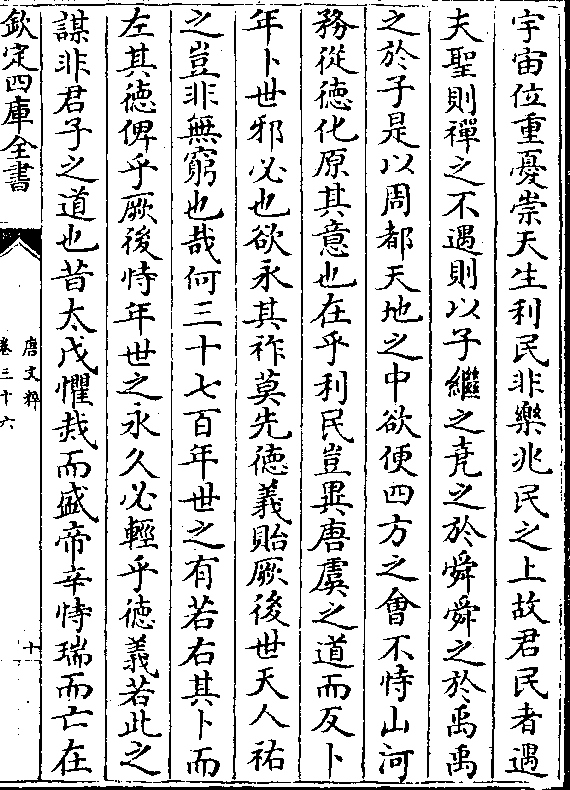 宇宙位重憂崇天生利民非樂兆民之上故君民者遇
夫聖則禪之不遇則以子繼之堯之於舜舜之於禹禹
之於子是以周都天地之中欲便四方之會不恃山河
務從徳化原其意也在乎利民豈異唐虞之道而反卜
年卜世邪必也欲永其祚莫先徳義貽厥後世天人祐
之豈非無窮也哉何三十七百年世之有若右其卜而
左其徳俾乎厥後恃年世之永久必輕乎徳義若此之
謀非君子之道也昔太戊懼烖而盛帝辛恃瑞而亡在
欽定四庫全書
唐文粹
卷三十六
十